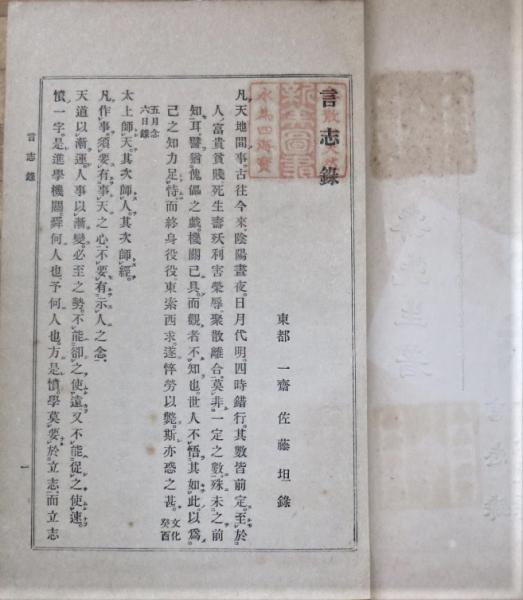 言志錄
東都　一齋　佐藤坦錄
凡天地間事。古往今來。陰陽晝夜。日月代明。四時錯行。其數皆前定。至於
人富貴貧賤。死生壽殀。利害榮辱。聚散離合。莫非一定之數。殊未之前
知耳。譬猶傀儡之戲。機關已具。而觀者不知也。世人不悟其如此。以爲
己之知力足恃。而終身役役東索西求。遂悴勞以斃。斯亦惑之甚。文化癸酉
五月念六日錄
太上師天。其次師人。其次師經。
凡作事。須要有事天之心。不要有示人之念。
天道以漸運。人事以漸變。必至之勢。不能卻之使遠。又不能促之使速。
憤一字。是進學機關。舜何人也。予何人也。方是憤。學莫要於立志。而立志
言志錄
一